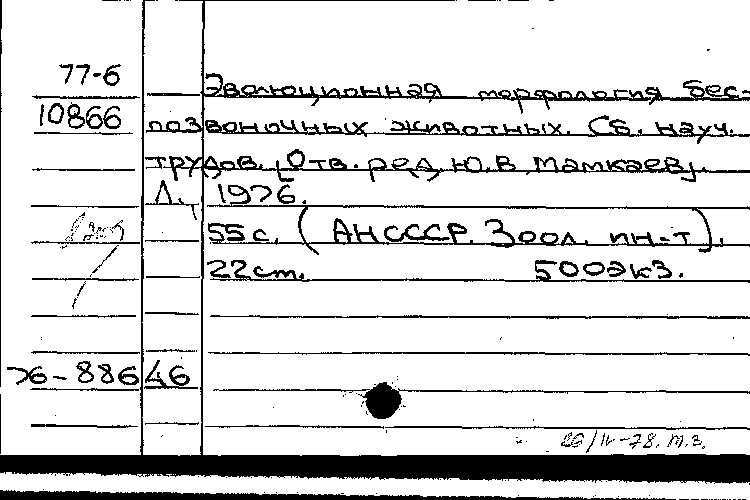 77-6
Эволюционная морфология бес-
10866
позвоночных животных. Сб. науч.
трудов. [Отв. ред. Ю.В. Мамкаев].
Л., 1976.
55 с. (АН СССР. Зоол. ин-т).
22 см. 500 экз.
76-88646
26/IV-78. м.з.